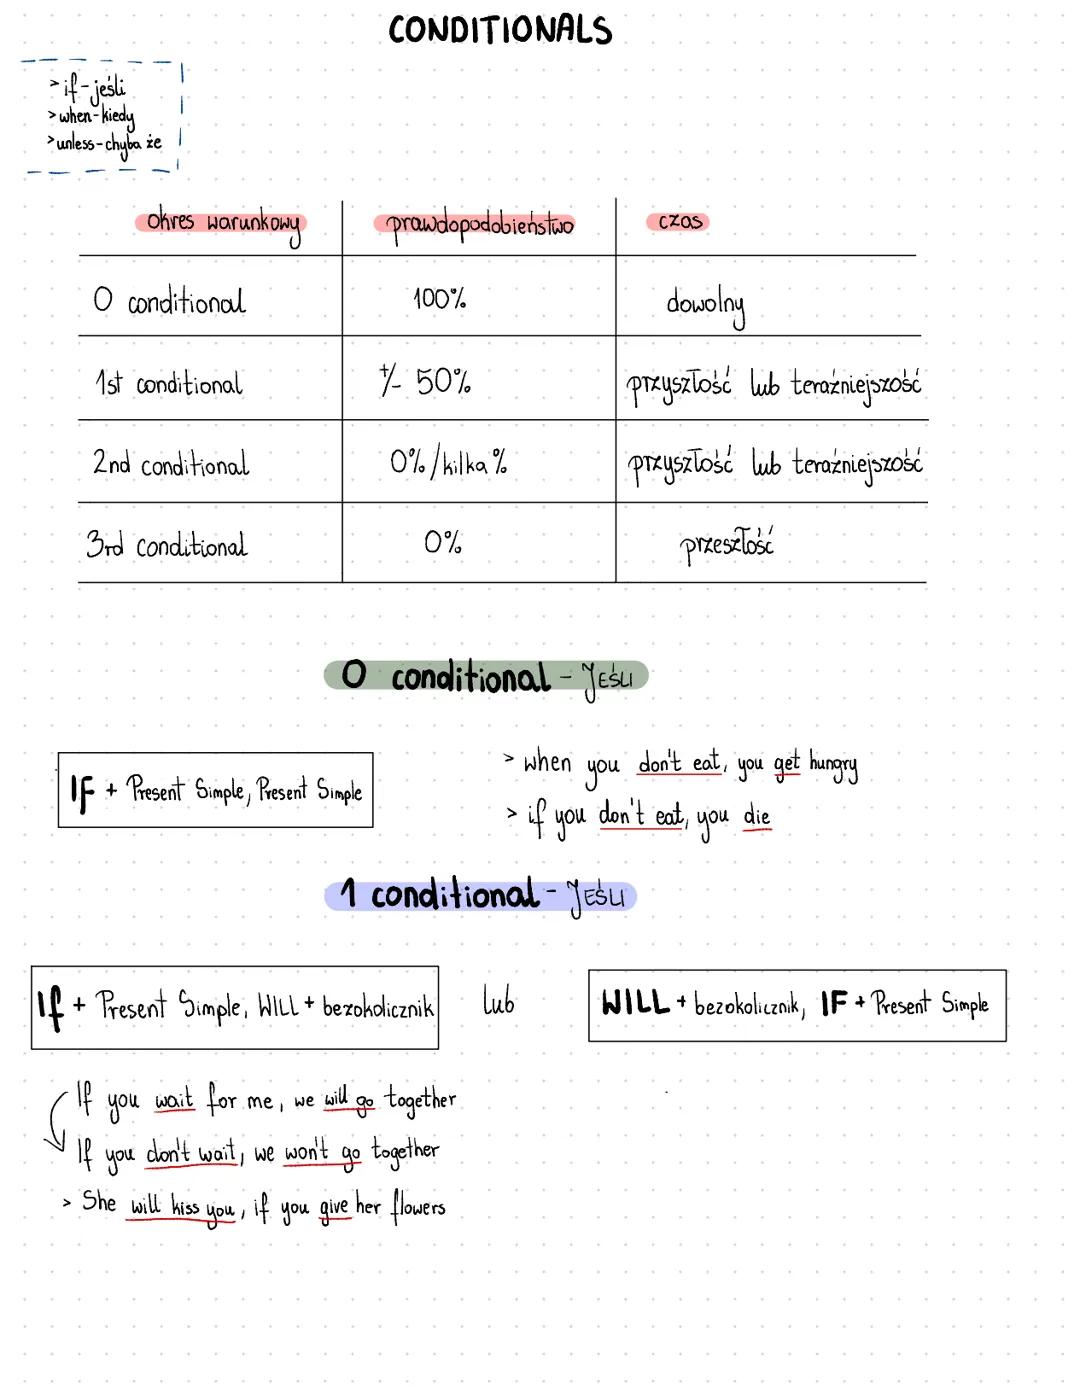 CONDITIONALS
> if - jeśli
> when - kiedy
> unless - chyba że
okres warunkowy prawdopodobieństwo czas
0 conditional 100% dowolny
1st conditional +/- 50% przyszłość lub teraźniejszość
2nd conditional 0% / kilka % przyszłość lub teraźniejszość
3rd conditional 0% przeszłość
0 conditional - JEŚLI
IF + Present Simple, Present Simple
> when you don't eat, you get hungry
> if you don't eat, you die
1 conditional - JEŚLI
If + Present Simple, WILL + bezokolicznik lub WILL + bezokolicznik, IF + Present Simple
If you wait for me, we will go together
If you don't wait, we won't go together
> She will kiss you, if you give her flowers